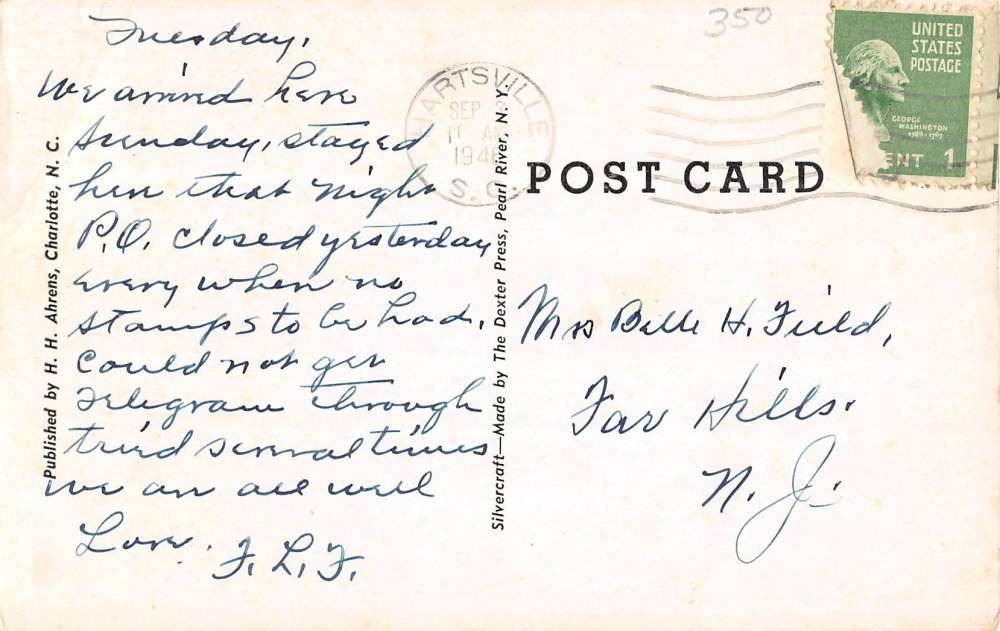 350
Tuesday,
We arrived here
Sunday, stayed
here that night
P.O. closed yesterday
every where no
stamps to be had.
Could not get
Telegram through
tried several times
we are all well
Love.
F. L. F.
Published by H. H. Ahrens, Charlotte, N. C.
Silvercraft—Made by The Dexter Press, Pearl River, N. Y.
HARTSVILLE
SEP
11 AM
194
S.C.
POST CARD
UNITED
STATES
POSTAGE
GEORGE
WASHINGTON
1789-1797
ENT 1
Mrs Belle H. Field,
Far Hills.
N. J.